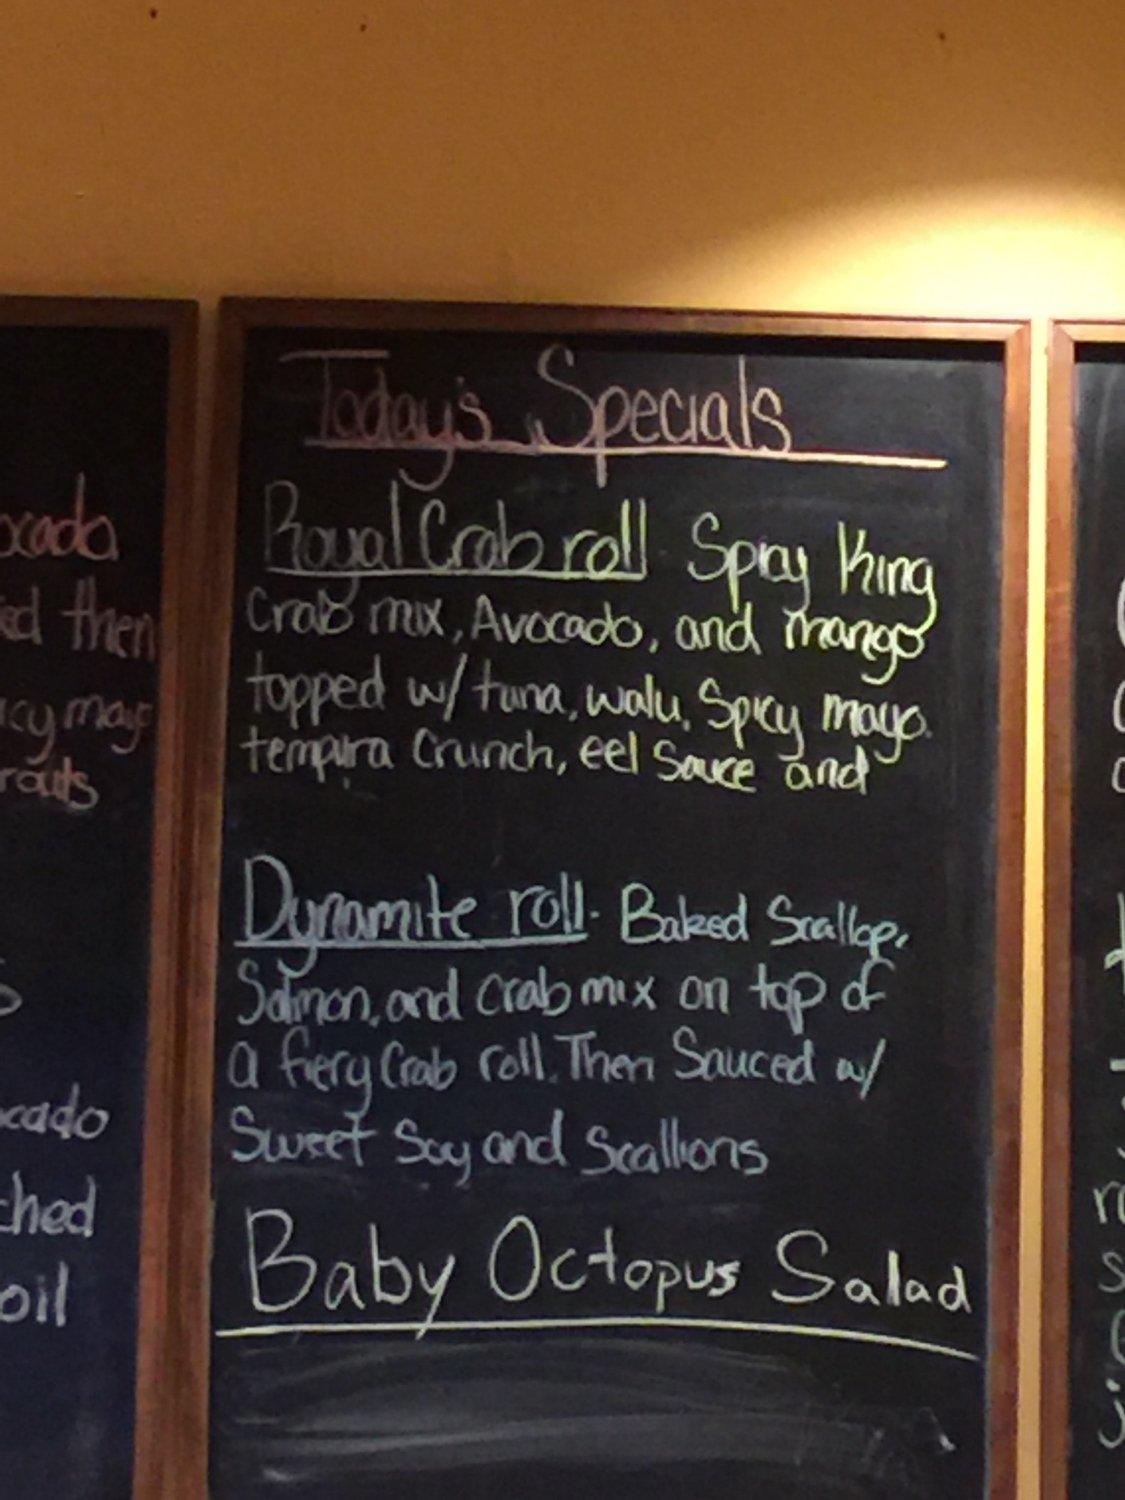 Today's Specials
Royal Crab roll Spicy King
Crab mix, Avocado, and mango
topped w/ tuna, walu, Spicy mayo.
tempura Crunch, eel Sauce and
Dynamite roll. Baked Scallop,
Salmon, and crab mix on top of
a fiery Crab roll. Then Sauced w/
Sweet Soy and Scallions
Baby Octopus Salad
ocado
ed then
icy mayo
routs
cado
ched
oil